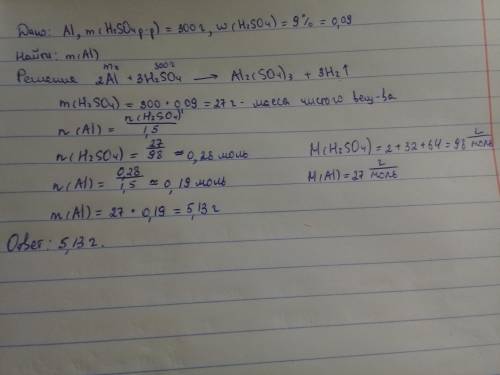 Дано: Al, m(H₂SO₄ р-р) = 300 г, w(H₂SO₄) = 9% = 0,09
Найти: m(Al)
m г 300 г
Решения 2Al + 3H₂SO₄ → Al₂(SO₄)₃ + 3H₂↑
m(H₂SO₄) = 300 · 0,09 = 27 г - масса чистого вещ-ва
n(Al) = n(H₂SO₄) / 1,5
n(H₂SO₄) = 27/98 ≈ 0,28 моль M(H₂SO₄) = 2 + 32 + 64 = 98 г/моль
n(Al) = 0,28/1,5 ≈ 0,19 моль M(Al) = 27 г/моль
m(Al) = 27 · 0,19 = 5,13 г
Ответ: 5,13 г.